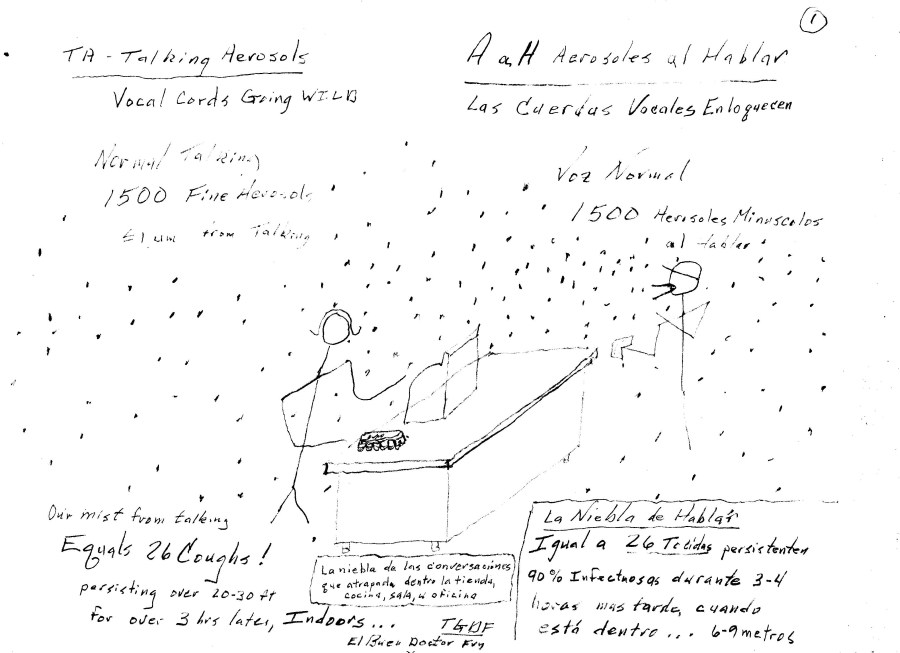 1
TA - Talking Aerosols
Vocal Cords Going WILD
Normal Talking
1500 Fine Aerosols
≤1 um from Talking
A a H Aerosoles al Hablar
Las Cuerdas Vocales Enloquecen
Voz Normal
1500 Aerosoles Minusculos
al hablar
Our mist from talking
Equals 26 Coughs!
persisting over 20-30 ft
for over 3 hrs later, Indoors...
La niebla de las conversaciones
que atrapada dentro la tienda,
cocina, sala, u oficina
TGDF
El Buen Doctor Fry
La Niebla de Hablar
Igual a 26 persistenten
90% Infectuosas durante 3-4
horas mas tarde, cuando
está dentro... 6-9 metros